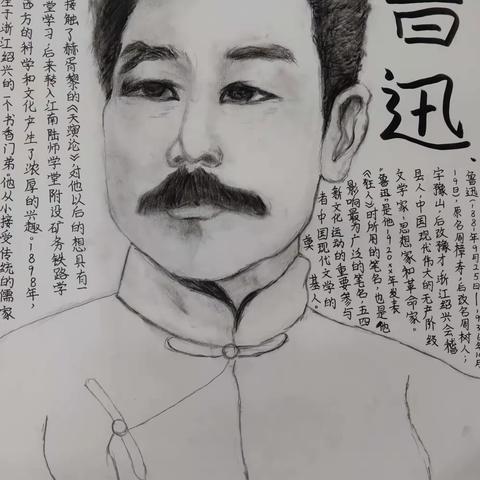 鲁迅
鲁迅(1881年9月25日—1936年10月
19日),原名周樟寿,后改名周树人;
字豫山,后改豫才,浙江绍兴会稽
县人,中国现代伟大的无产阶级
文学家,思想家和革命家。
"鲁迅"是他1920xx年发表
《狂人》时所用的笔名,也是他
影响最为广泛的笔名,五四
新文化运动的重要参与
者中国现代文学的
奠基人。
接触了赫胥黎的《天演论》,对他以后的想具有一
堂学习,后来转入江南陆师学堂附设矿务铁路学
西方的科学和文化产生了浓厚的兴趣。1898年,
生于浙江绍兴的一个书香门弟。他从小接受传统的儒家